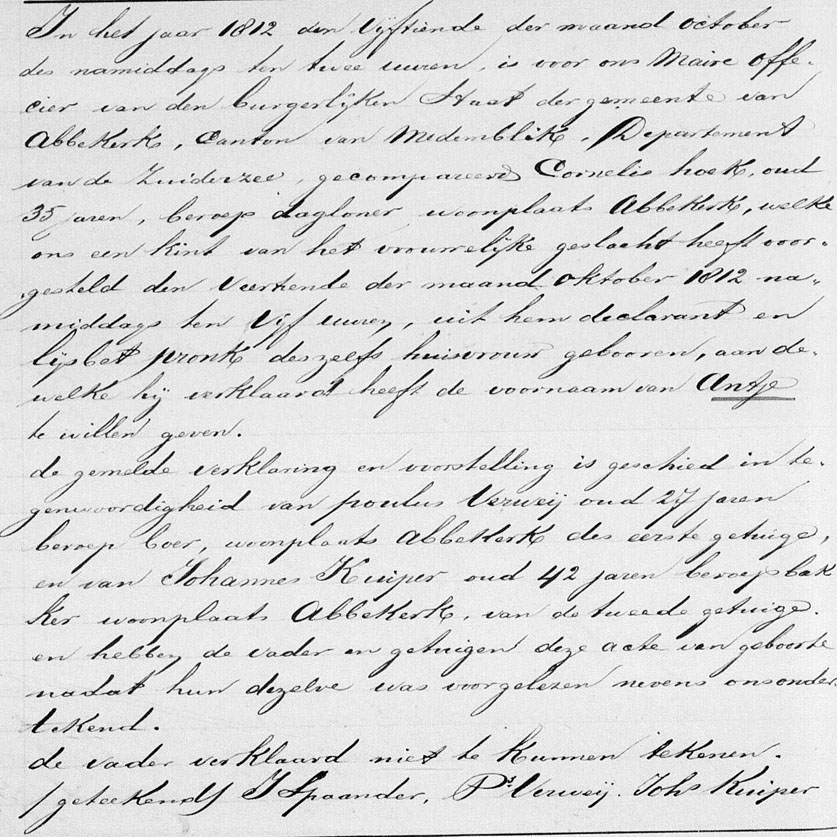 In het jaar 1812 den Vijftiende der maand October
des namiddags ten twee uuren, is voor ons Maire offi-
cier van den burgerlijken Staat der gemeente van
Abbekerk, Canton van Medemblik, Departement
van de Zuiderzee, gecompareerd Cornelis hoek, oud
35 jaren, beroep dagloner woonplaats Abbekerk, welke
ons een kint van het vrouwelijke geslacht heeft voor-
gesteld den Veertiende der maand Oktober 1812 na-
middags ten Vijf uuren, uit hem declarant en
lijsbet pronk deszelfs huisvrouw gebooren, aan de-
welke hij verklaard heeft de voornaam van Antje
te willen geven.
de gemelde verklaring en voorstelling is geschied in te-
genwoordigheid van poulus Verweij oud 27 jaren
beroep boer, woonplaats Abbekerk des eerste getuige,
en van Johannes Kuiper oud 42 jaren beroep bak
ker woonplaats Abbekerk, van de tweede getuige.
en hebben de vader en getuigen deze acte van geboorte
nadat hun dezelve was voorgelezen nevens ons onder
tekend.
de vader verklaard niet te kunnen tekenen.
/geteekend/ J Spaander, Ps Verweij. Johs Kuiper